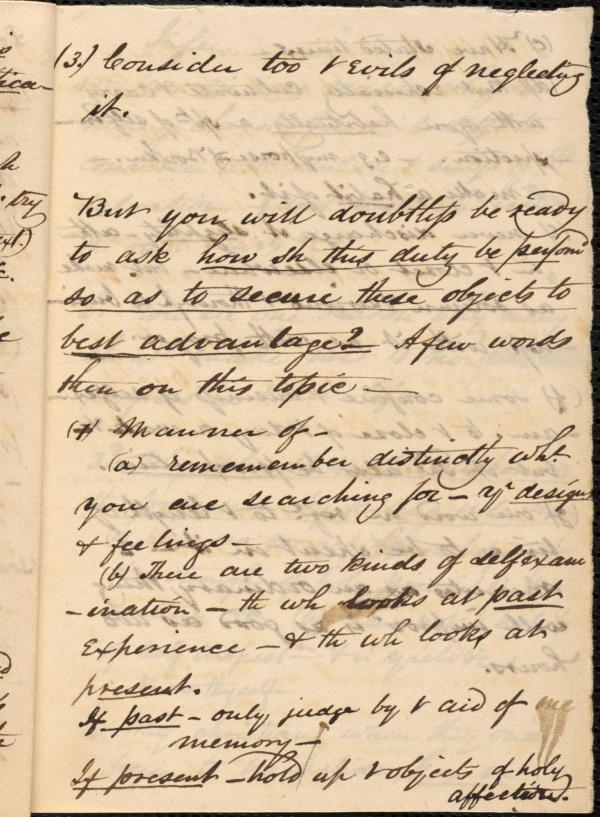 (3.) Consider too & Evils of neglecting
it.
But you will doubtless be ready
to ask how sh this duty be perfomd
so as to secure these objects to
best advantage? A few words
then on this topic —
Manner of —
(a) rememember distinctly wht
you are searching for — yr designs
& feelings —
(b) There are two kinds of selfexam
-ination — th wh looks at past
Experience — & th wh looks at
present.
If past — only judge by & aid of
memory —
If present — hold up & objects of holy
affection.
try